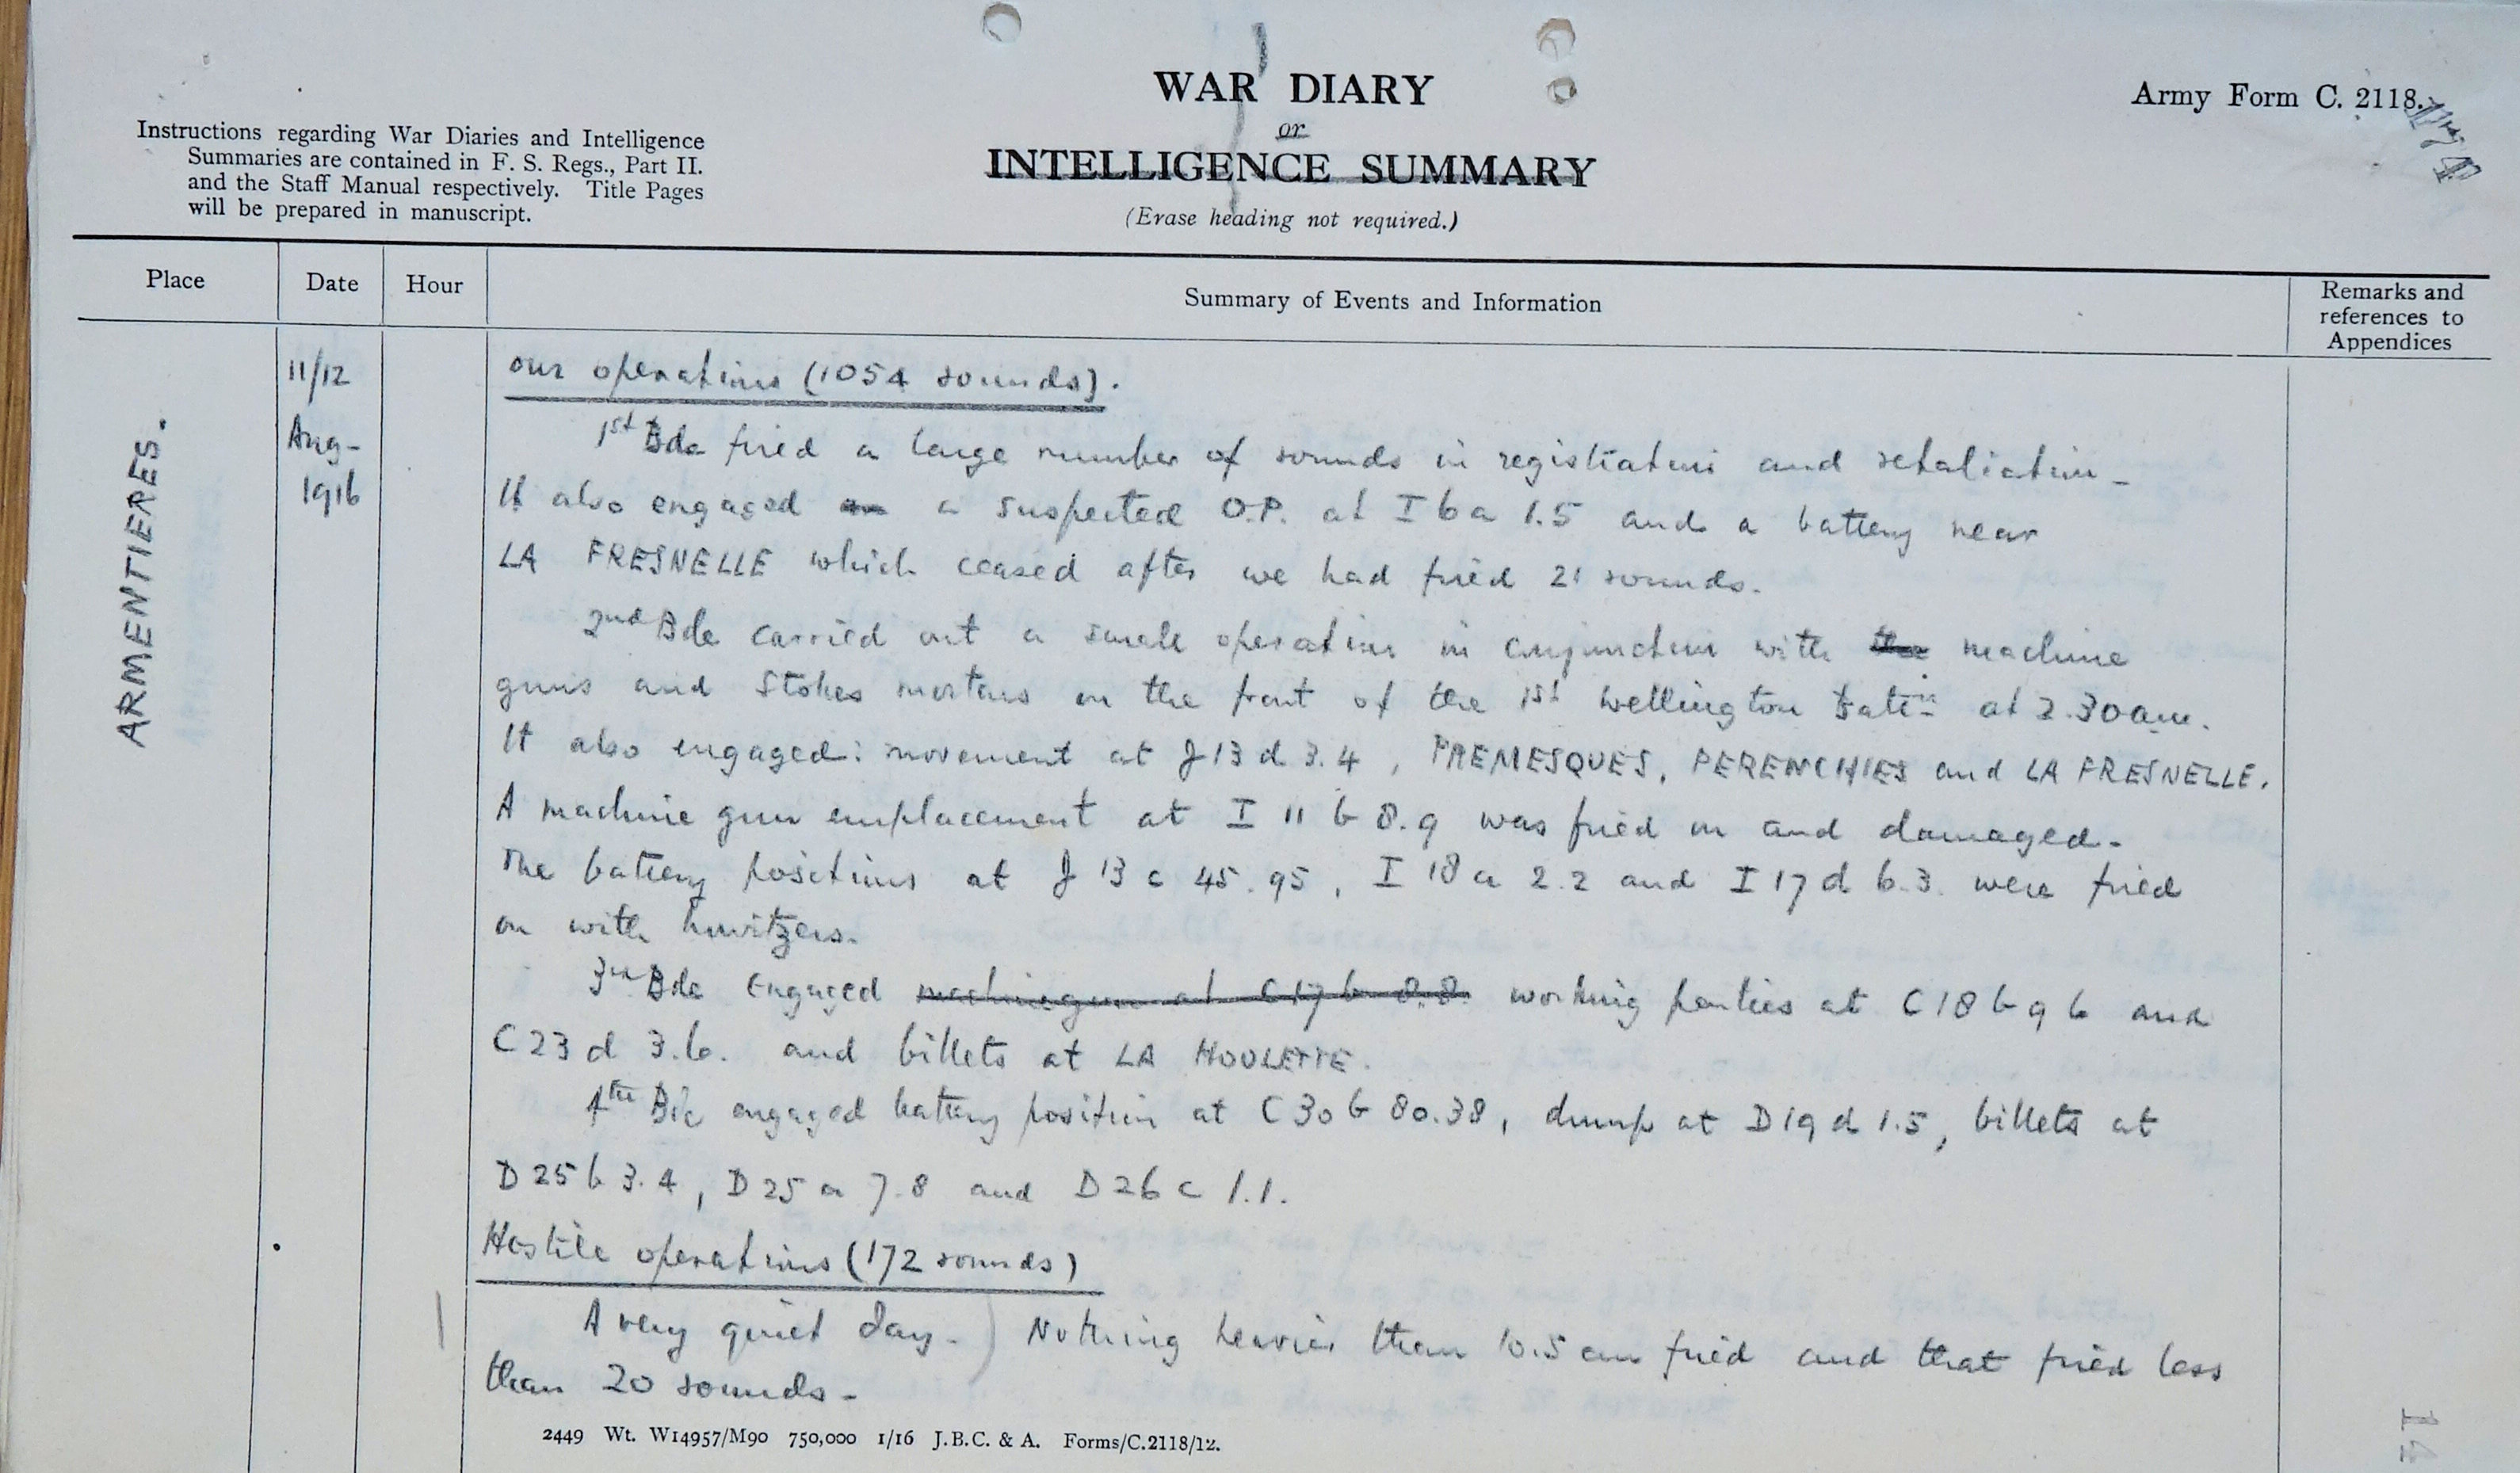 WAR DIARY
or
INTELLIGENCE SUMMARY
(Erase heading not required.)
Army Form C. 2118.
Instructions regarding War Diaries and Intelligence
Summaries are contained in F. S. Regs., Part II.
and the Staff Manual respectively. Title Pages
will be prepared in manuscript.
Place
Date
Hour
Summary of Events and Information
Remarks and
references to
Appendices
ARMENTIERES.
11/12
Aug-
1916
our operations (1054 rounds).
1st Bde fired a large number of rounds in registration and retaliation-
It also engaged an a suspected O.P. at I 6 a 1.5 and a battery near
LA FRESNELLE which ceased after we had fired 21 rounds.
2nd Bde carried out a small operation in conjunction with the machine
guns and Stokes mortars on the front of the 1st Wellington Battn at 2.30am.
It also engaged: movement at J 13 d 3.4, PREMESQUES, PERENCHIES and LA FRESNELLE.
A machine gun emplacement at I 11 b 8.9 was fired on and damaged-
The battery positions at J 13 c 45.95, I 18 a 2.2 and I 17 d 6.3. were fired
on with howitzers.
3rd Bde engaged machine gun at C 17 b 8.8. working parties at C 18 b 9 6 and
C 23 d 3.6. and billets at LA HOULETTE.
4th Bde engaged battery position at C 30 b 80.38, dump at D 19 d 1.5, billets at
D 25 b 3.4, D 25 a 7.8 and D 26 c 1.1.
Hostile operations (172 rounds)
A very quiet day-) Nothing heavier than 10.5 cm fired and that fired less
than 20 rounds-
2449 Wt. W14957/M90 750,000 1/16 J.B.C. & A. Forms/C.2118/12.
14